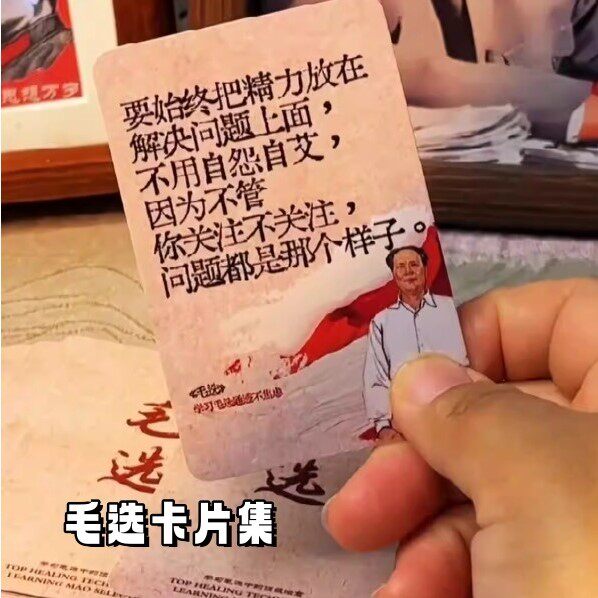 思想万岁
要始终把精力放在
解决问题上面，
不用自怨自艾，
因为不管
你关注不关注，
问题都是那个样子。
《毛选》
学习毛选通透不焦虑
毛
选
选
毛选卡片集
TOP HEALING TECH
LEARNING MAO SELEC
TOP HEALING TECH
LEARNING MAO SELE